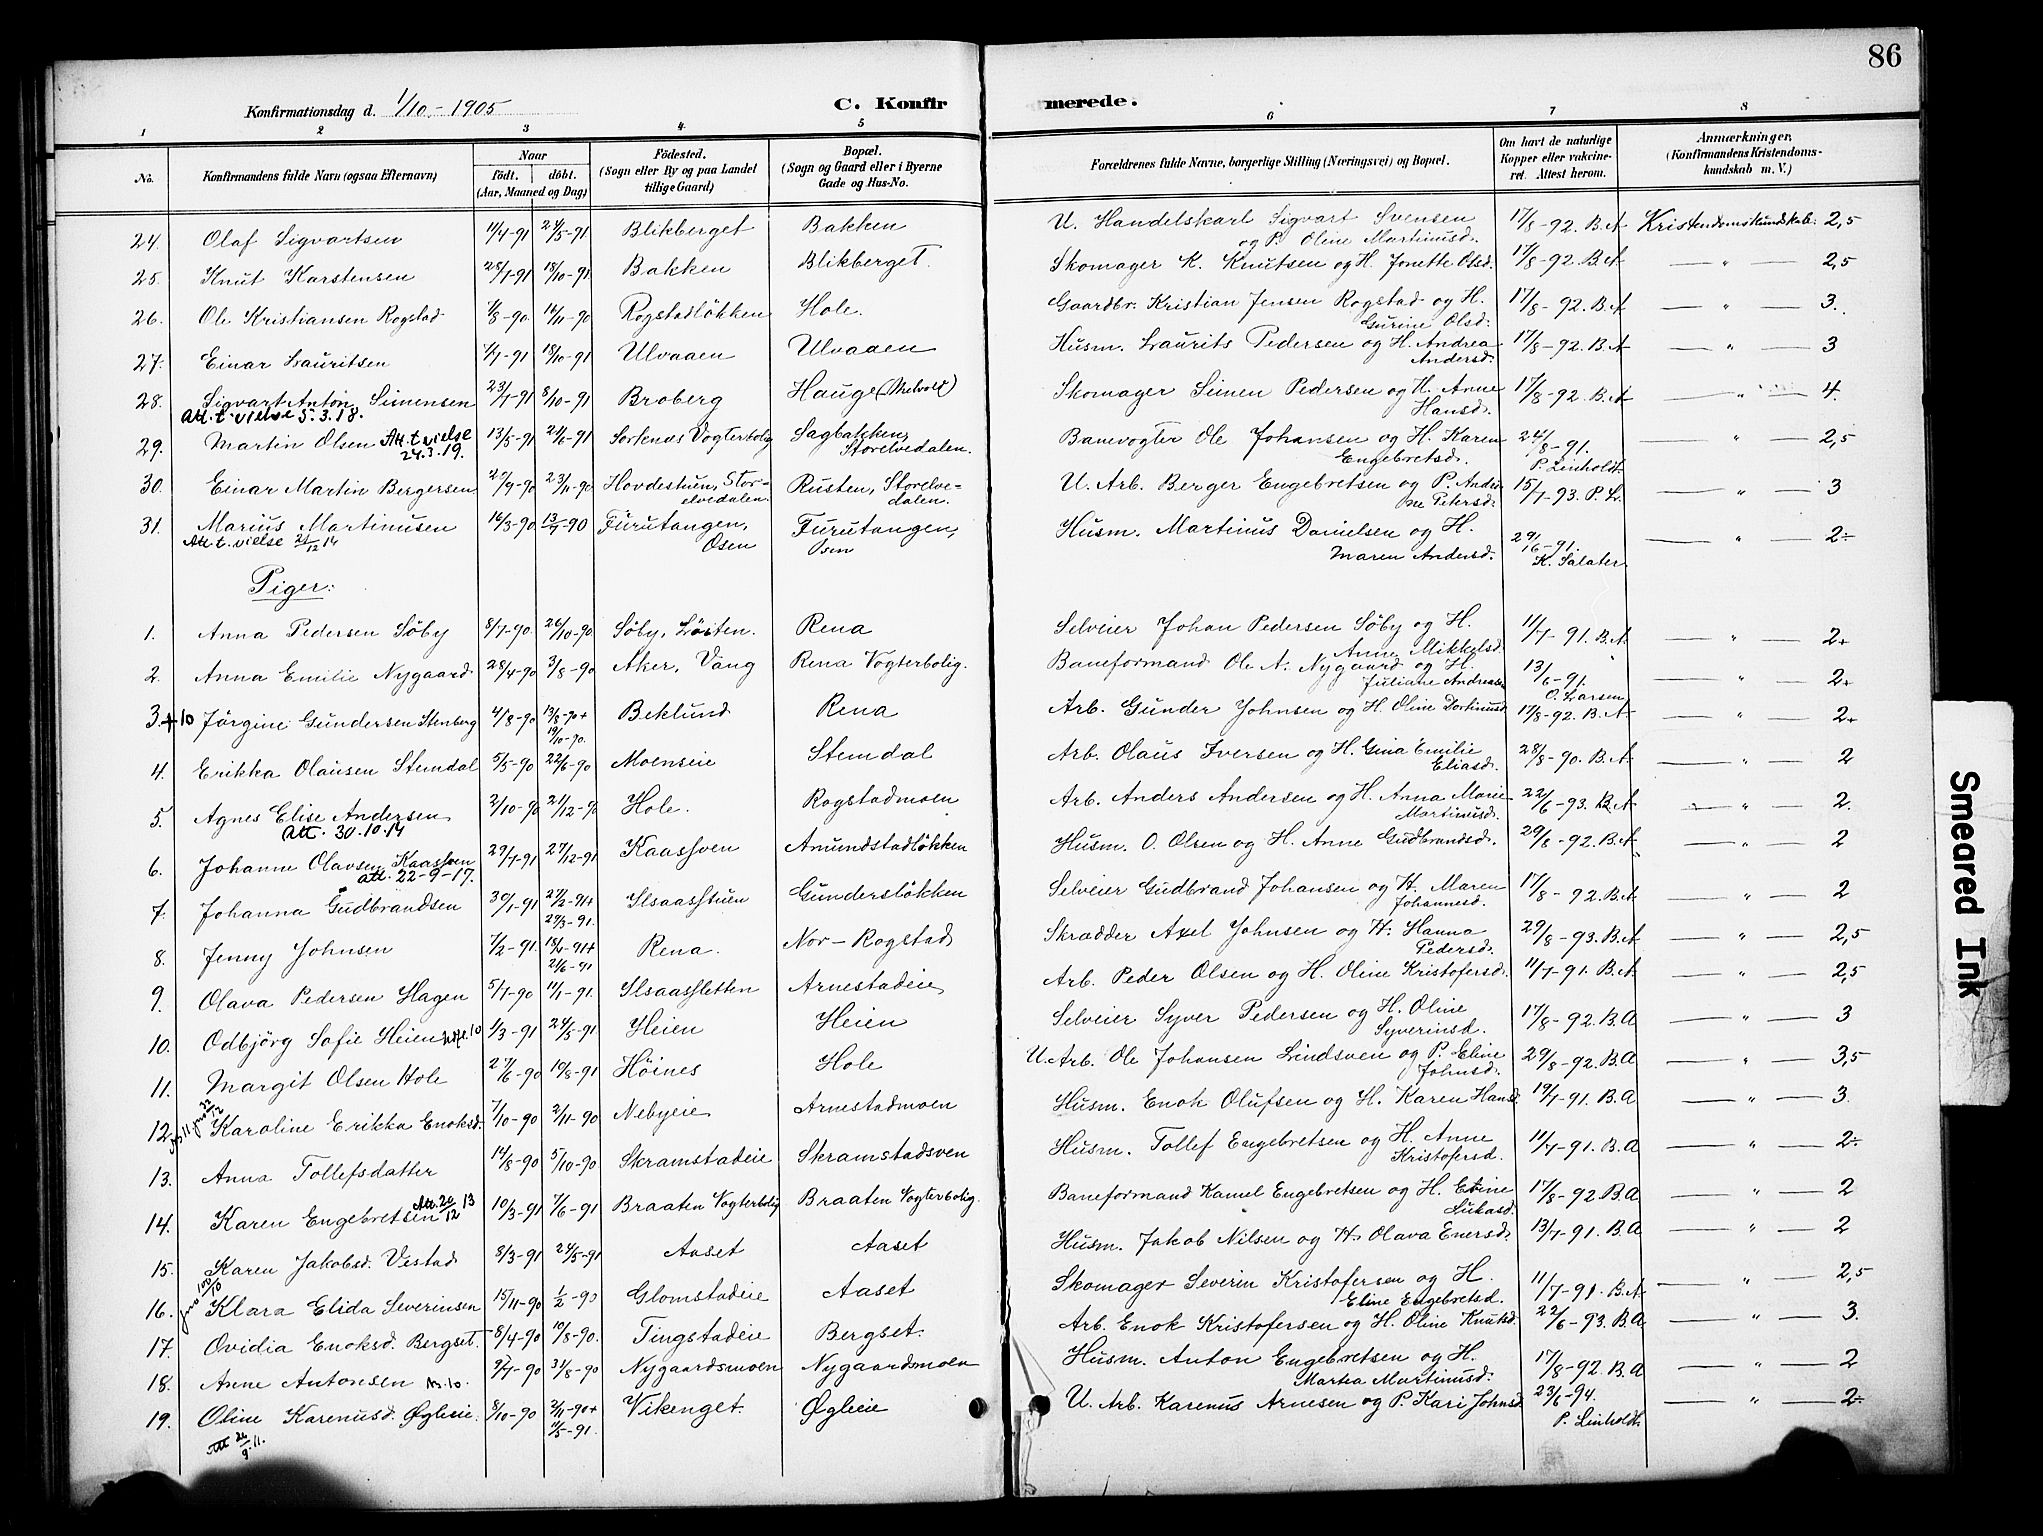 86
Konfirmationsdag d. 1/10 - 1905
C. Konfirmerede.
1 2 3 4 5 6 7 8
No.
Konfirmandens fulde Navn (ogsaa Efternavn)
Naar
født. døbt.
(Aar, Maaned og Dag)
Fødested.
(Sogn eller By og paa Landet
tillige Gaard)
Bopæl.
(Sogn og Gaard eller i Byerne
Gade og Hus-No.
Forældrenes fulde Navne, borgerlige Stilling (Næringsvei) og Bopæl.
Om havt de naturlige
Kopper eller vakcine-
ret. Attest herom.
Anmærkninger.
(Konfirmandens Kristendoms-
kundskab m. V.)
24. Olaf Sigvartsen 11/4-91 24/5-91 Blikberget Bakken U. Handelskarl Sigvart Svensen 17/8-92. B.A Kristendomskundskab: 2,5
og P. Oline Martinusd.
25. Knut Karstensen 18/10-91 Bakken Blikberget. Skomager K. Knutsen og H. Jonette Olsd. 17/8-92. B.A — " — 2,5
26. Ole Kristiansen Rogstad 1/8-90. 14/11-90 Rogstadløkken Hole. Gaardbr. Kristian Jensen Rogstad og H. 17/8-92. B.A — " — 3.
Gurine Olsd.
27. Einar Lauritsen 18/10-91 Ulvaaen Ulvaaen Husm. Laurits Pedersen og H. Andrea 17/8-92. B.A — " — 3
Andersd.
28. Sigvart Anton Simensen 8/10-91 Broberg Hauge (Melvold) Skomager Simen Pedersen og H. Anne 17/8-92. B.A — " — 4.
Att. t. vielse 5.3.18. Hansd.
29. Martin Olsen Att. t vielse 13/5-91 21/6-91 Sorknæs Vogterbolig Sagbakken, Banevogter Ole Johansen og H. Karen 24/8-91. — " — 2,5
24.3.19. Storelvedalen. Engebretsd. P. Linholdt
30. Einar Martin Bergersen 23/11-90 Hovdestun, Stor- Rusten, Storelve- U. Arb. Berger Engebretsen og P. Andri- 15/7-93. P. L. — " — 3
elvedalen. dalen. ne Petersd.
31. Marius Martinusen 14/3-90 13/7-90 Furutangen, Furutangen, Husm. Martinus Danielsen og H. — " — 2÷
Att t. vielse 21/12 14 Osen Osen Maren Andersd. K. Salater
Piger:
1. Anna Pedersen Søby 8/7-90. 26/10-90. Søby, Løiten. Rena Selveier Johan Pedersen Søby og H. 11/7-91. B.A — " — 2+
Anne Mikkelsd.
2. Anna Emilie Nygaard 28/4-90 3/8-90 Aker, Vang Rena Vogterbolig. Baneformand Ole A. Nygaard og H. 13/6-91. — " — 2+
Juliane Andreasen O. Larsen
3 +10 Jørgine Gundersen Stenberg 4/8-90 13/8-90+ Beklund Rena Arb. Gunder Johnsen og H. Oline Dortinusd 17/8-92. B.A — " — 2+
19/10-90.
4. Erikka Olausen Stemdal 5/5-90 22/6-90 Moenseie Stemdal Arb. Olaus Iversen og H. Gina Emilie 28/8-90. B.A — " — 2
Eliasd.
5. Agnes Elise Andersen 2/10-90 21/12-90 Hole. Rogstadmoen Arb. Anders Andersen og H. Anna Marie 22/6-93. B.A — " — 2.
Att. 30.10.14 Martinusd.
6. Johanne Olavsen Kaassven 29/7-91 27/12-91 Kaassven Amundstadløkken Husm. O. Olsen og H. Anne Gudbrandsd. 29/8-92. B.A — " — 2
att. 22-9-17.
7. Johanna Gudbrandsen 30/1-91 27/2-91+ Ilsaasstuen Gundersløkken Selveier Gudbrand Johansen og H. Maren 17/8-92. B.A — " — 2
Johannesd.
8. Jenny Johnsen 7/2-91. Rena. Nor-Rogstad Skrædder Axel Johnsen og H. Hanna 29/8-93. B.A — " — 2,5
21/6-91 Pedersd.
9. Olava Pedersen Hagen 5/7-90 11/1-91. Ilsaassletten Arnestadeie Arb. Peder Olsen og H. Oline Kristofersd. 11/7-91. B.A — " — 2,5
10. Odbjørg Sofie Heien 1/3-91 24/5-91 Heien Heien Selveier Syver Pedersen og H. Oline 17/8-92. B.A — " — 3
Syverinsd.
11. Margit Olsen Hole 27/6-90 19/8-91 Høines Hole U. Arb. Ole Johansen Lindsven og P. Eline 29/8-92. B.A — " — 3,5
Johnsd.
12. Karoline Erikka Enoksd. 7/10-90 2/11-90 Nebyeie Arnestadmoen Husm. Enok Olufsen og H. Karen Hansd 19/7-91. B.A — " — 3.
13. Anna Tollefsdatter 14/8-90 5/10-90 Skramstadeie Skramstadsven Husm. Tollef Engebretsen og H. Anne 11/7-91. B.A — " — 2÷
Kristofersd.
14. Karen Engebretsen Att. 20/12 13 10/3-91 7/6-91 Braaten Vogterbolig Braaten Vogterbolig. Baneformand Kamel Engebretsen og H. Eline 17/8-92 B.A — " — 2
Lukasd.
15. Karen Jakobsd. Vestad 8/3-91 24/5-91 Aaset Aaset Husm. Jakob Nilsen og H. Olava Enersd. 13/7-91. B.A — " — 2
16. Klara Elida Severinsen 15/11-90 1/2-90 Glomstadeie Aaset Skomager Severin Kristofersen og H. 11/7-91. B.A — " — 2,5
Eline Engebretsd.
17. Ovidia Enoksd. Bergset. 8/4-90 10/8-90. Tingstadeie Bergset. Arb. Enok Kristofersen og H. Oline Knutsd. 22/6-93. B.A — " — 3.
18. Anne Antonsen 9/7-90 31/8-90 Nygaardsmoen Nygaardsmoen Husm. Anton Engebretsen og H. 17/8-92. B.A — " — 2
Martea Martinusd.
19. Oline Karenusd. Øgleie. 8/10-90 2/11-90+ Vikenget. Øgleie U. Arb. Karenus Arnesen og P. Kari Johnsd 23/6-94. — " — 2÷
11/5-91. P. Linholdt
Att
Smeared Ink